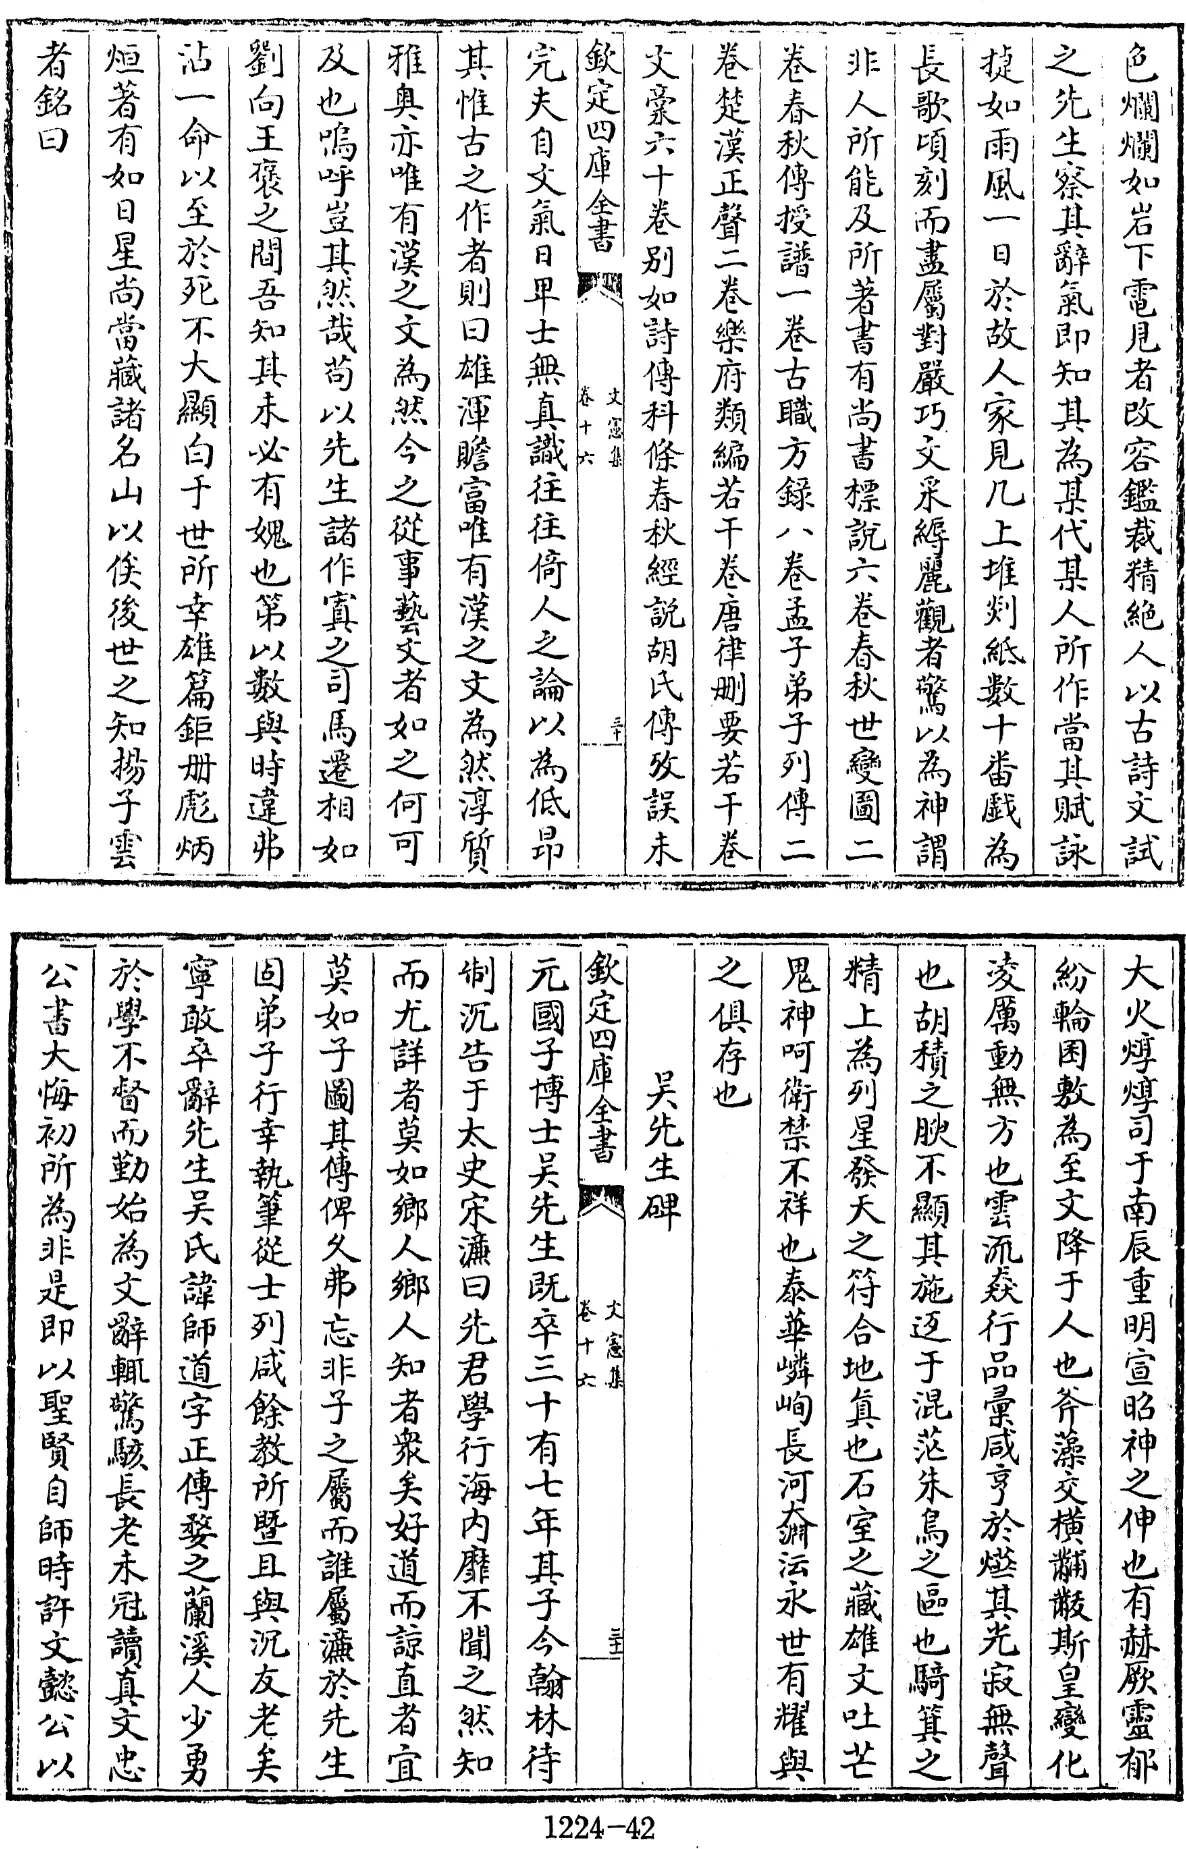 色爛爛如岩下電見者改容鑑裁精絶人以古詩文試
之先生察其辭氣即知其為某代某人所作當其賦詠
捷如雨風一日於故人家見几上堆剡紙數十番戲為
長歌頃刻而盡屬對嚴巧文采縟麗觀者驚以為神謂
非人所能及所著書有尚書標說六卷春秋世變圖二
卷春秋傳授譜一卷古職方錄八卷孟子弟子列傳二
卷楚漢正聲二卷樂府類編若干卷唐律刪要若干卷
文藁六十卷别如詩傳科條春秋經說胡氏傳攷誤未
欽定四庫全書
文憲集
卷十六
三十
完夫自文氣日卑士無真識往往倚人之論以為低昂
其惟古之作者則曰雄渾贍富唯有漢之文為然淳質
雅奥亦唯有漢之文為然今之從事藝文者如之何可
及也嗚呼豈其然哉苟以先生諸作寘之司馬遷相如
劉向王褒之間吾知其未必有媿也第以數與時違弗
沾一命以至於死不大顯白于世所幸雄篇鉅册彪炳
烜著有如日星尚當藏諸名山以俟後世之知揚子雲
者銘曰
大火焞焞司于南辰重明宣昭神之伸也有赫厥靈郁
紛輪囷敷為至文降于人也斧藻交橫黼黻斯皇變化
凌厲動無方也雲流猋行品彙咸亨於爀其光寂無聲
也胡積之腴不顯其施迓于混茫朱鳥之區也騎箕之
精上為列星發天之符合地真也石室之藏雄文吐芒
鬼神呵衛禁不祥也泰華嶙峋長河奫沄永世有耀與
之俱存也
吴先生碑
欽定四庫全書
文憲集
卷十六
三十一
元國子博士吴先生既卒三十有七年其子今翰林待
制沉告于太史宋濂曰先君學行海内靡不聞之然知
而尤詳者莫如鄉人鄉人知者衆矣好道而諒直者宜
莫如子圖其傳俾乆弗忘非子之屬而誰屬濂於先生
固弟子行幸執筆從士列咸餘教所暨且與沉友老矣
寧敢卒辭先生吴氏諱師道字正傳婺之蘭溪人少勇
於學不督而勤始為文辭輒驚駭長老未冠讀真文忠
公書大悔初所為非是即以聖賢自師時許文懿公以
1224-42